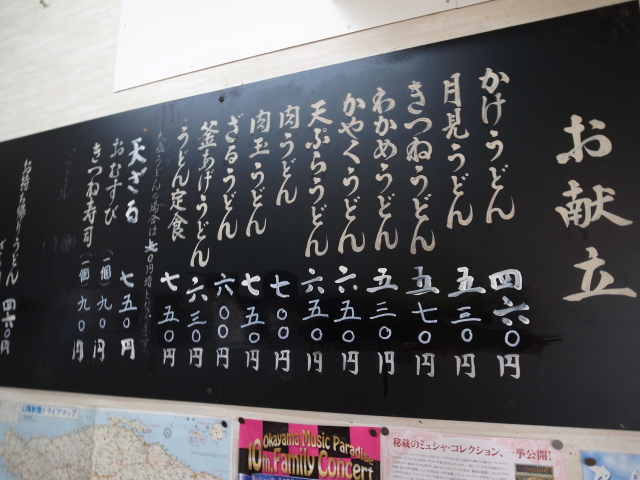 お献立
かけうどん 四六〇円
月見うどん 五三〇円
きつねうどん 五七〇円
わかめうどん 五三〇円
かやくうどん 六五〇円
天ぷらうどん 六五〇円
肉うどん 七〇〇円
肉玉うどん 七五〇円
ざるうどん 六〇〇円
釜あげうどん 六三〇円
うどん定食 七五〇円
大盛うどんの場合は 円増となります。
天ざる 七五〇円
おむすび (一個) 九〇円
きつね寿司 (一個) 九〇円
お持ち帰りうどん 四六〇円
山陽新聞ドライブマップ
Okayama Music Paradise
10th Family Concert
秘蔵のミュシャ・コレクション、一挙公開!